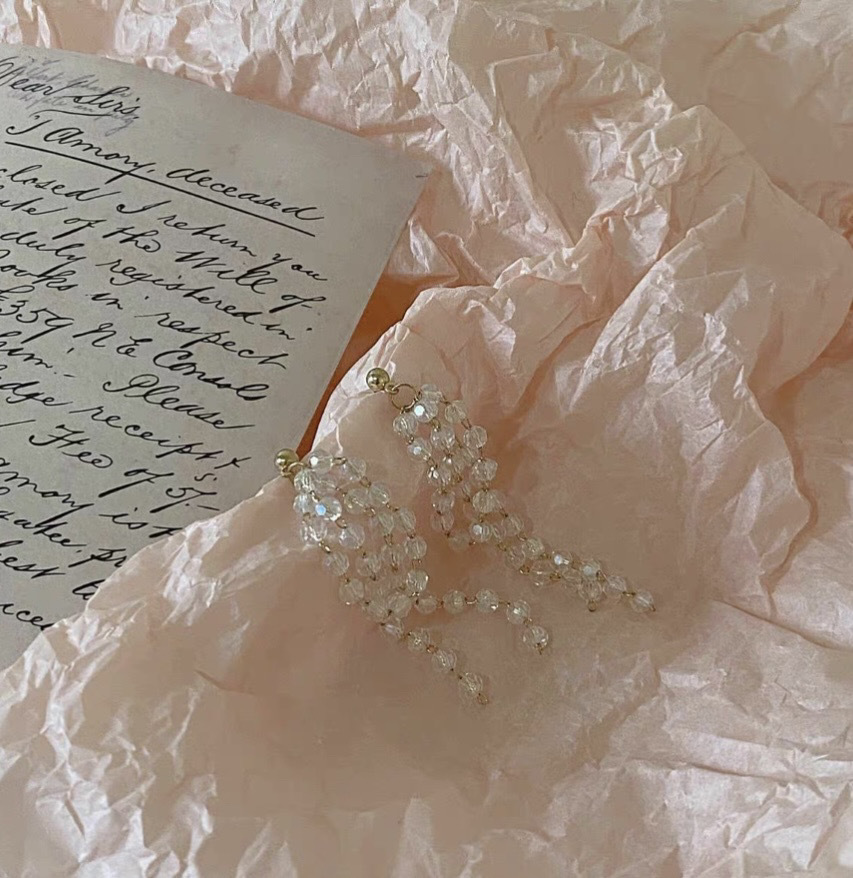 Dear Sirs
J Amory, deceased
closed I return you
of the Will of
duly registered in
Books in respect
£359 N E Consols
him. Please
receipt
Fee of 5/-
Amory is